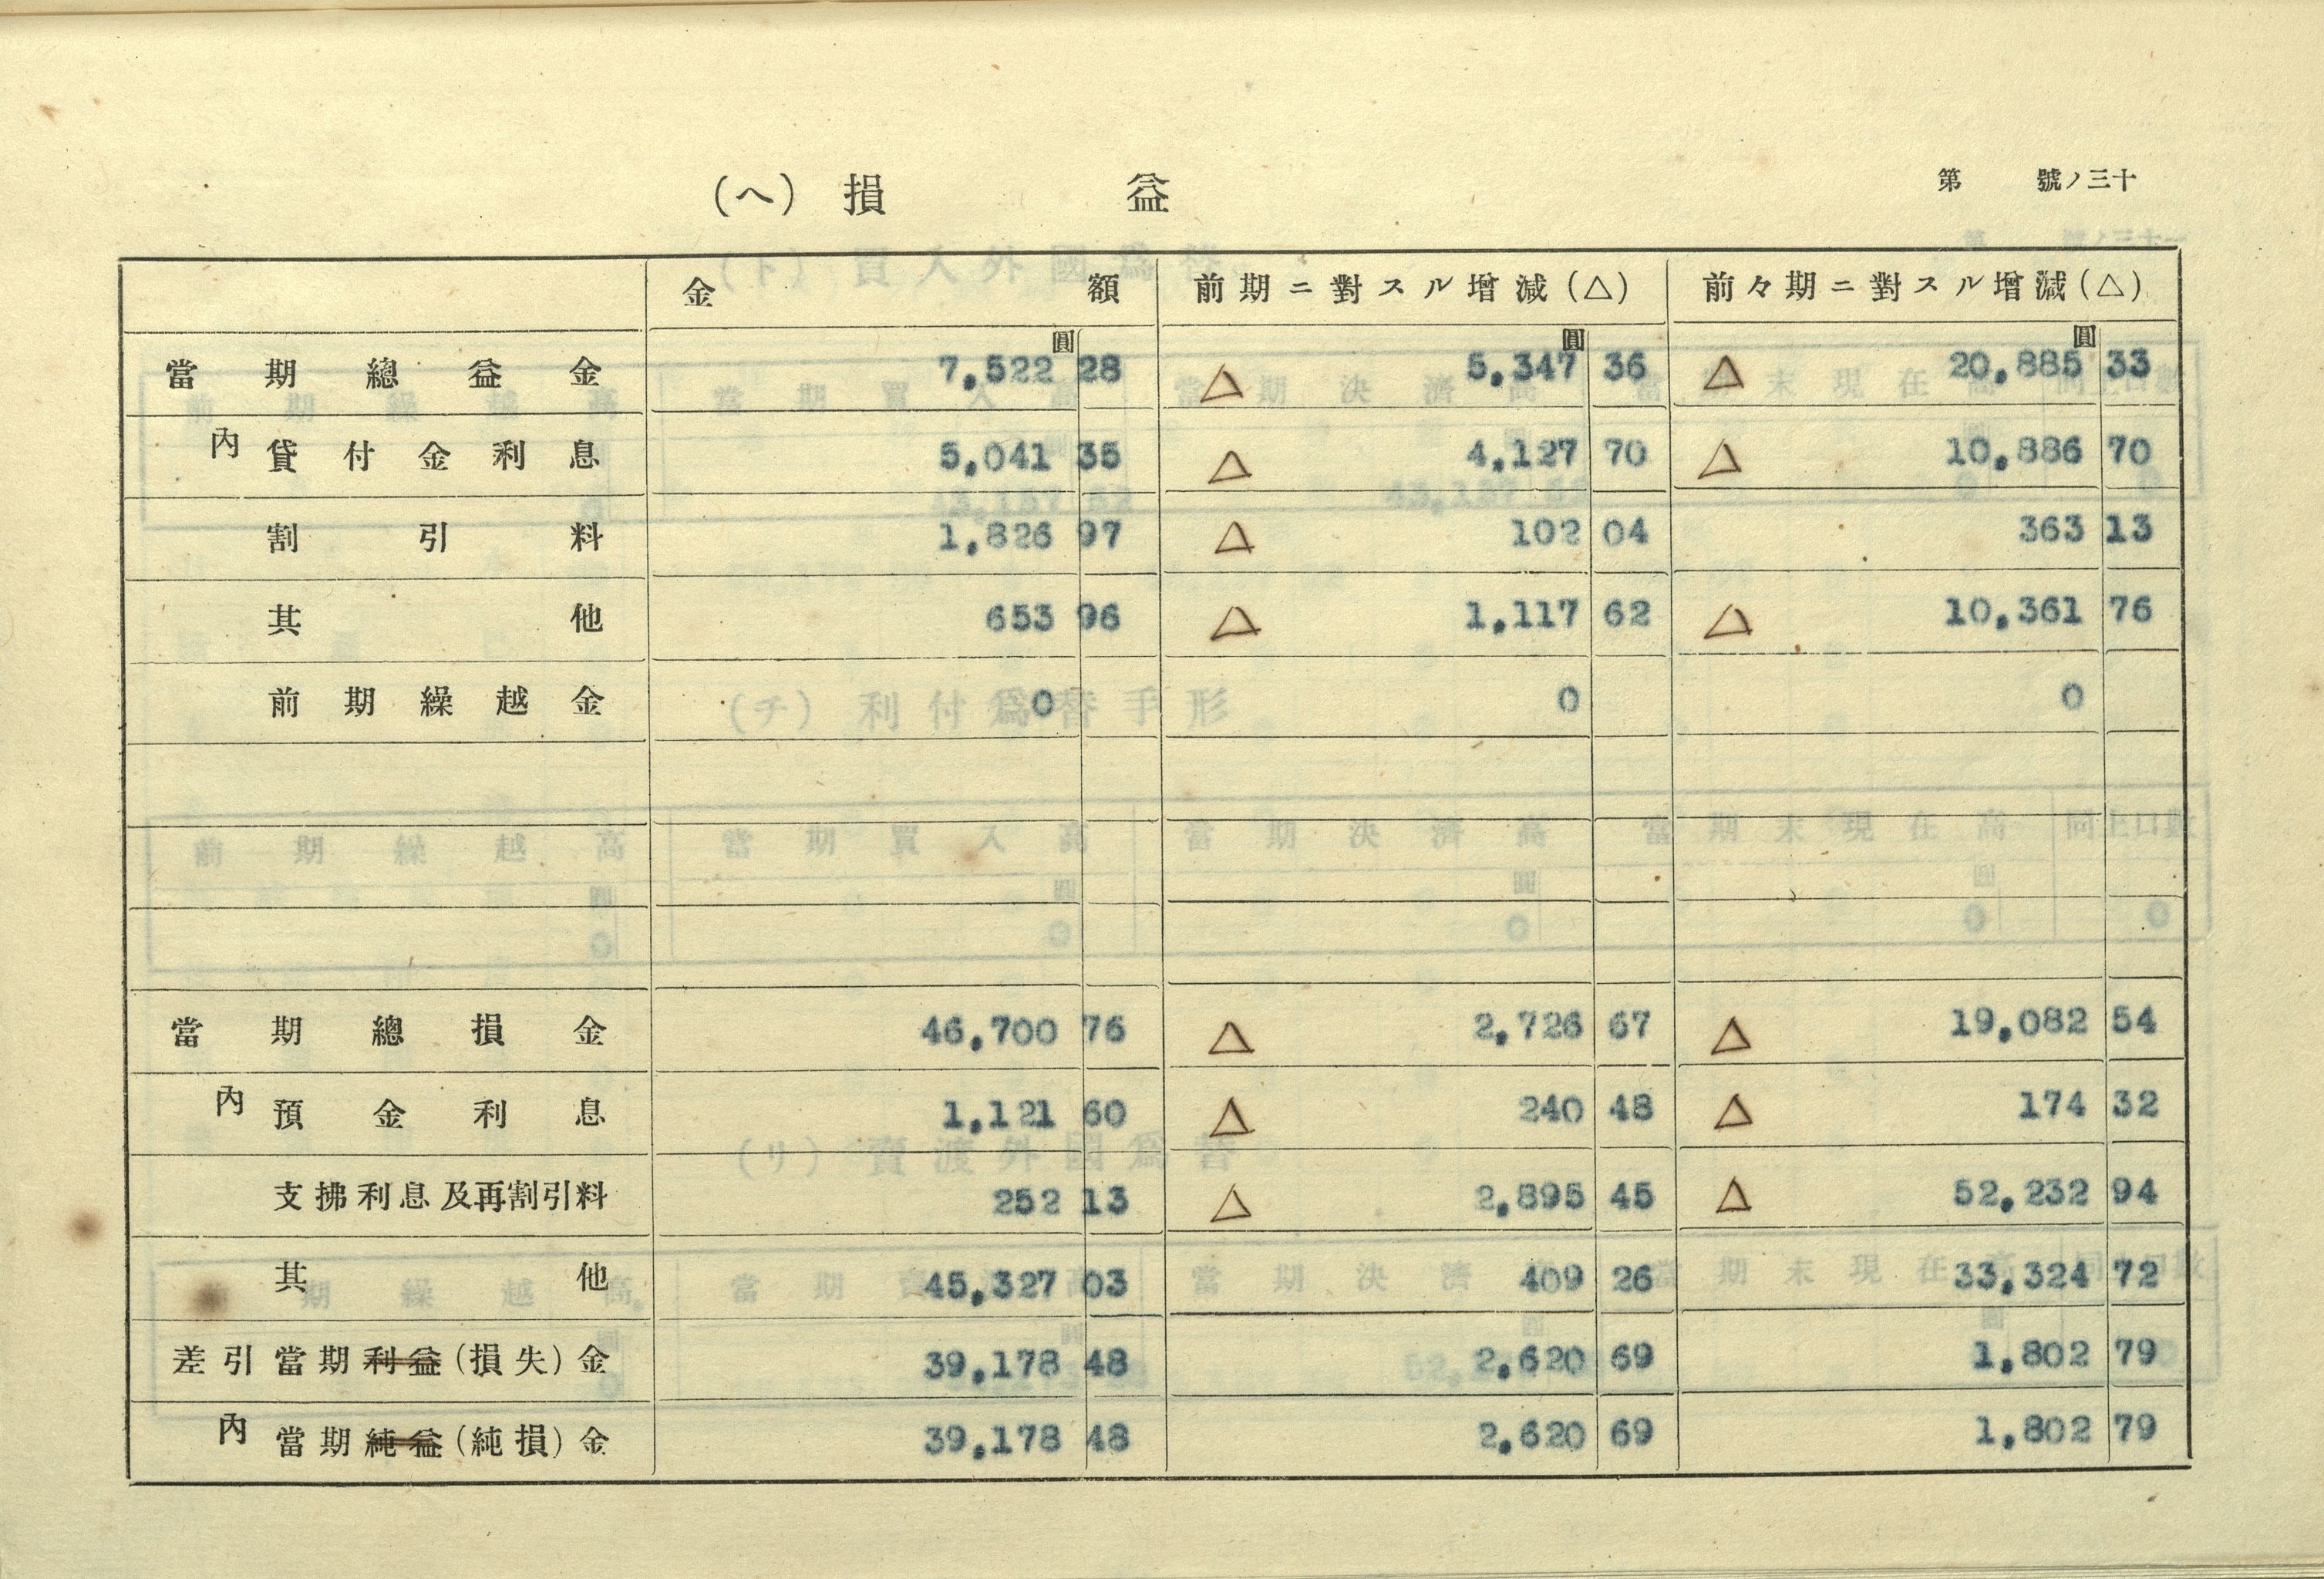 第　號ノ三十
(ヘ) 損益
金額 前期ニ對スル增減(△) 前々期ニ對スル增減(△)
圓 圓 圓
當期總益金 7,522 28 △ 5,347 36 △ 20,885 33
內 貸付金利息 5,041 35 △ 4,127 70 △ 10,886 70
割引料 1,826 97 △ 102 04 363 13
其他 653 96 △ 1,117 62 △ 10,361 76
前期繰越金 0 0 0
當期總損金 46,700 76 △ 2,726 67 △ 19,082 54
內 預金利息 1,121 60 △ 240 48 △ 174 32
支拂利息及再割引料 252 13 △ 2,895 45 △ 52,232 94
其他 45,327 03 409 26 33,324 72
差引當期利益(損失)金 39,178 48 2,620 69 1,802 79
內 當期純益(純損)金 39,178 48 2,620 69 1,802 79